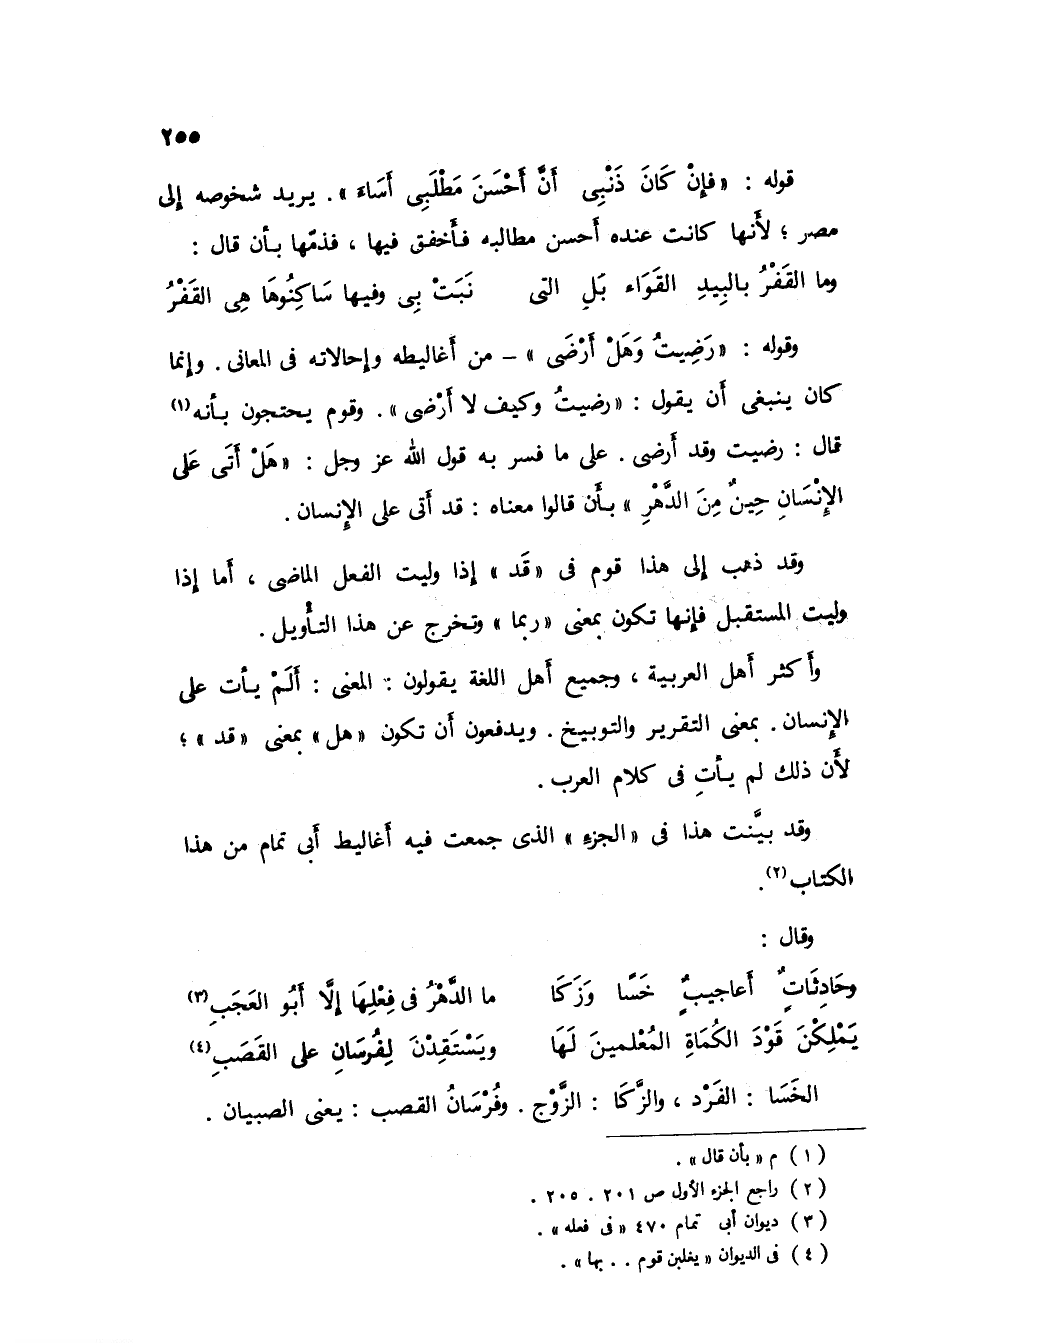 ٢٥٥
قوله : « فإنْ كَانَ ذَنْبِى أَنَّ أَحْسَنَ مَطْلَبِى أَسَاءَ » . يريد شخوصه إلى
مصر ؛ لأَنها كانت عنده أحسن مطالبه فأَخفق فيها ، فذمّها بأن قال :
وما القَفْرُ بالبِيدِ القَوَاء بَلِ التى نَبَتْ بِى وفيها سَاكِنُوهَا هِى القَفْرُ
وقوله : « رَضِيتُ وَهَلْ أَرْضَى » – من أَغاليطه وإحالاته فى المعانى . وإنما
كان ينبغى أن يقول : « رضيتُ وكيف لا أَرْضى » . وقوم يحتجون بأنه (١)
قال : رضيت وقد أَرضى . على ما فسر به قول الله عز وجل : « هَلْ أَتَى عَلَى
الإِنْسَانِ حِينٌ مِنَ الدَّهْرِ » بأَن قالوا معناه : قد أَتى على الإِنسان .
وقد ذهب إلى هذا قوم فى « قَد » إذا وليت الفعل الماضى ، أَما إذا
وليت المستقبل فإنها تكون بمعنى « ربما » وتخرج عن هذا التأْويل .
وأَكثر أَهل العربية ، وجميع أَهل اللغة يقولون : المعنى : أَلَمْ يأت على
الإِنسان . بمعنى التقرير والتوبيخ . ويدفعون أَن تكون « هل » بمعنى « قد » ؛
لأَن ذلك لم يأتِ فى كلام العرب .
وقد بيَّنت هذا فى « الجزء » الذى جمعت فيه أَغاليط أَبى تمام من هذا
الكتاب (٢) .
وقال :
وحَادِثَاتٌ أَعاجيبٌ خَسًا وَزَكَا ما الدَّهْرُ فى فِعْلِهَا إلَّا أَبُو العَجَبِ (٣)
يَمْلِكْنَ قَوْدَ الكُمَاةِ المُعْلمينَ لَهَا ويَسْتَقِدْنَ لِفُرسَانِ على القَصَبِ (٤)
الخَسَا : الفَرْد ، والزَّكَا : الزَّوْج . وفُرْسَانُ القصب : يعنى الصبيان .
( ١ ) م « بأن قال » .
( ٢ ) راجع الجزء الأول ص ٢٠١ . ٢٠٥ .
( ٣ ) ديوان أبى تمام ٤٧٠ « فى فعله » .
( ٤ ) فى الديوان « يغلبن قوم . . بها » .